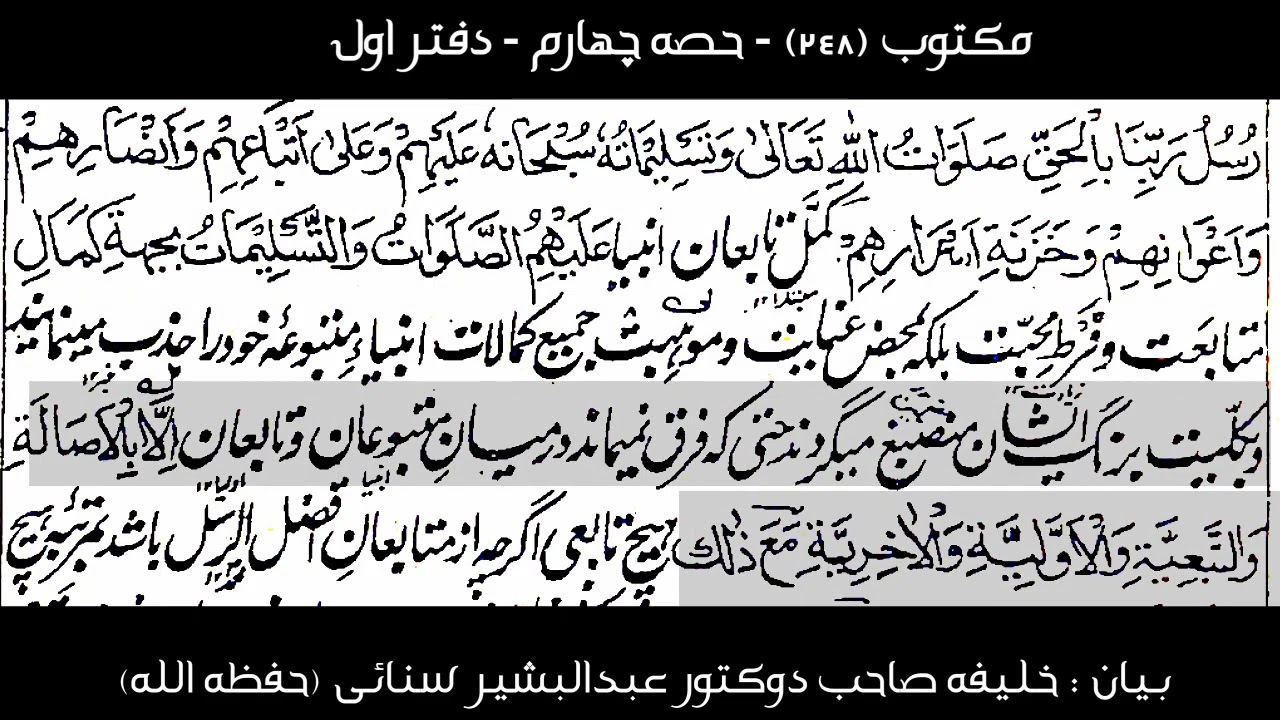 مکتوب (۲٤۸) - حصه چهارم - دفتر اول
رُسُلُ رَبِّنَا بِالْحَقِّ صَلَوَاتُ اللّٰهِ تَعَالٰی وَتَسْلِیْمَاتُهٗ سُبْحَانَهٗ عَلَیْهِمْ وَعَلٰی اَتْبَاعِهِمْ وَاَنْصَارِهِمْ
وَاَعْوَانِهِمْ وَخَزَنَةِ اَسْرَارِهِمْ کُمَّل تابعان انبیا عَلَیْهِمُ الصَّلَوَاتُ وَالتَّسْلِیْمَاتُ بجهةِ کَمَالِ
متابعت وفرطِ محبّت بلکه بمحض عنایت وموهبت جمیع کمالات انبیاءِ متبوعۀ خود را جذب مینمایند
وبکلّیت برنگ ایشان منصبغ میگردند حتی که فرق نمیماند در میان متبوعان وتابعان اِلَّا بِالْاَصَالَةِ
وَالتَّبَعِیَّةِ وَالْاَوَّلِیَّةِ وَالْاٰخِرِیَّةِ مَعَ ذٰلِكَ هیچ تابعی اگرچه از متابعانِ افضل الرسل باشد بمرتبه هیچ
بیان : خلیفه صاحب دوکتور عبدالبشیر سنائی (حفظه الله)